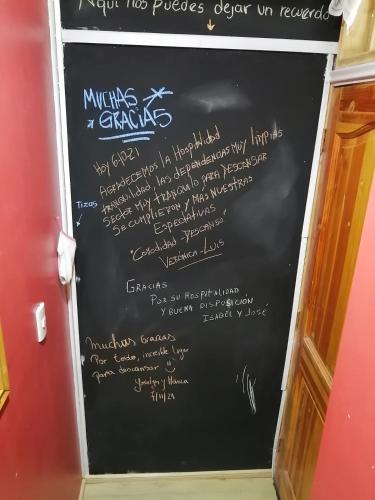 Aquí nos puedes dejar un recuerdo
MUCHAS
GRACIAS
Tizas
Hoy 61021
AGRADECEMOS LA HOSPITALIDAD
TRANQUILIDAD LAS DEPENDENCIAS MUY LIMPIAS
SECTOR MUY TRANQUILO PARA DESCANSAR
SE CUMPLIERON Y MAS NUESTRAS
ESPECTATIVAS
"COMODIDAD-DESCANSO"
VERÓNICA-LUIS
GRACIAS
POR SU HOSPITALIDAD
Y BUENA DISPOSICIÓN
ISABEL Y JOSÉ
Muchas Gracias
Por todo, increíble lugar
para descansar
Yoselyn y
7/11/21